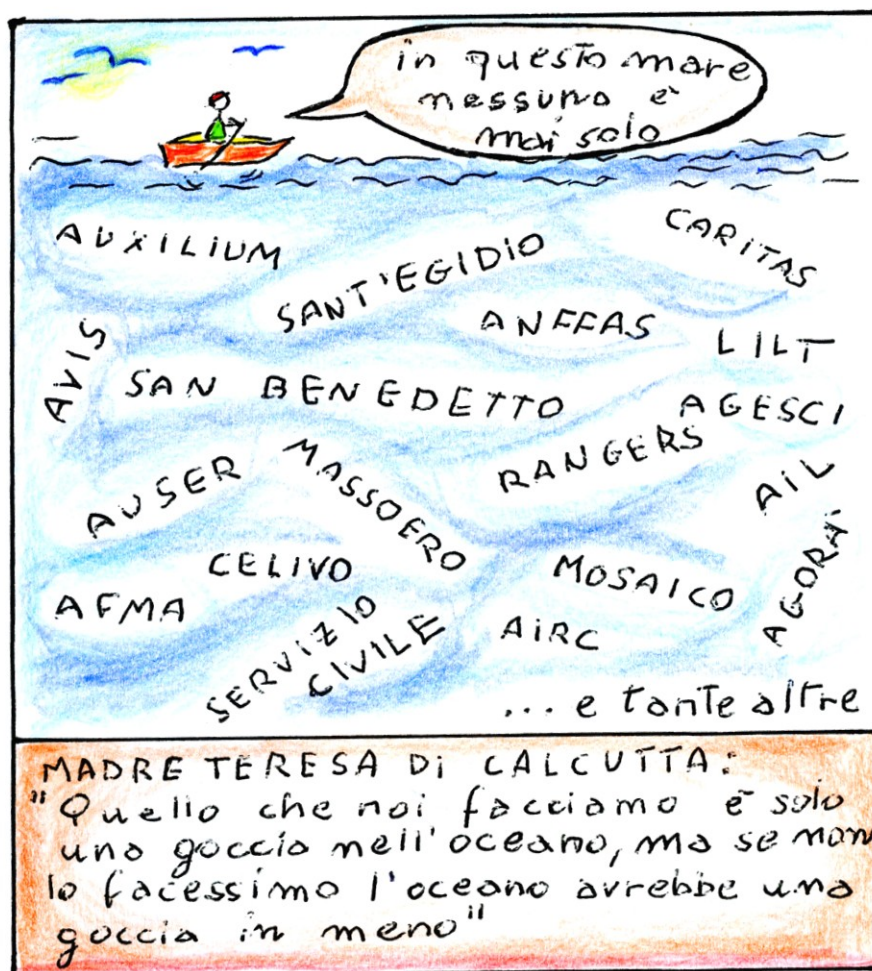 in questo mare
nessuno è
mai solo
AUXILIUM
SANT'EGIDIO
CARITAS
AVIS
ANFFAS
LILT
SAN BENEDETTO
AGESCI
RANGERS
AUSER
MASSOERO
AIL
CELIVO
MOSAICO
AGORA'
AFMA
SERVIZIO
CIVILE
AIRC
... e tante altre
MADRE TERESA DI CALCUTTA:
"Quello che noi facciamo è solo
una goccia nell'oceano, ma se non
lo facessimo l'oceano avrebbe una
goccia in meno"